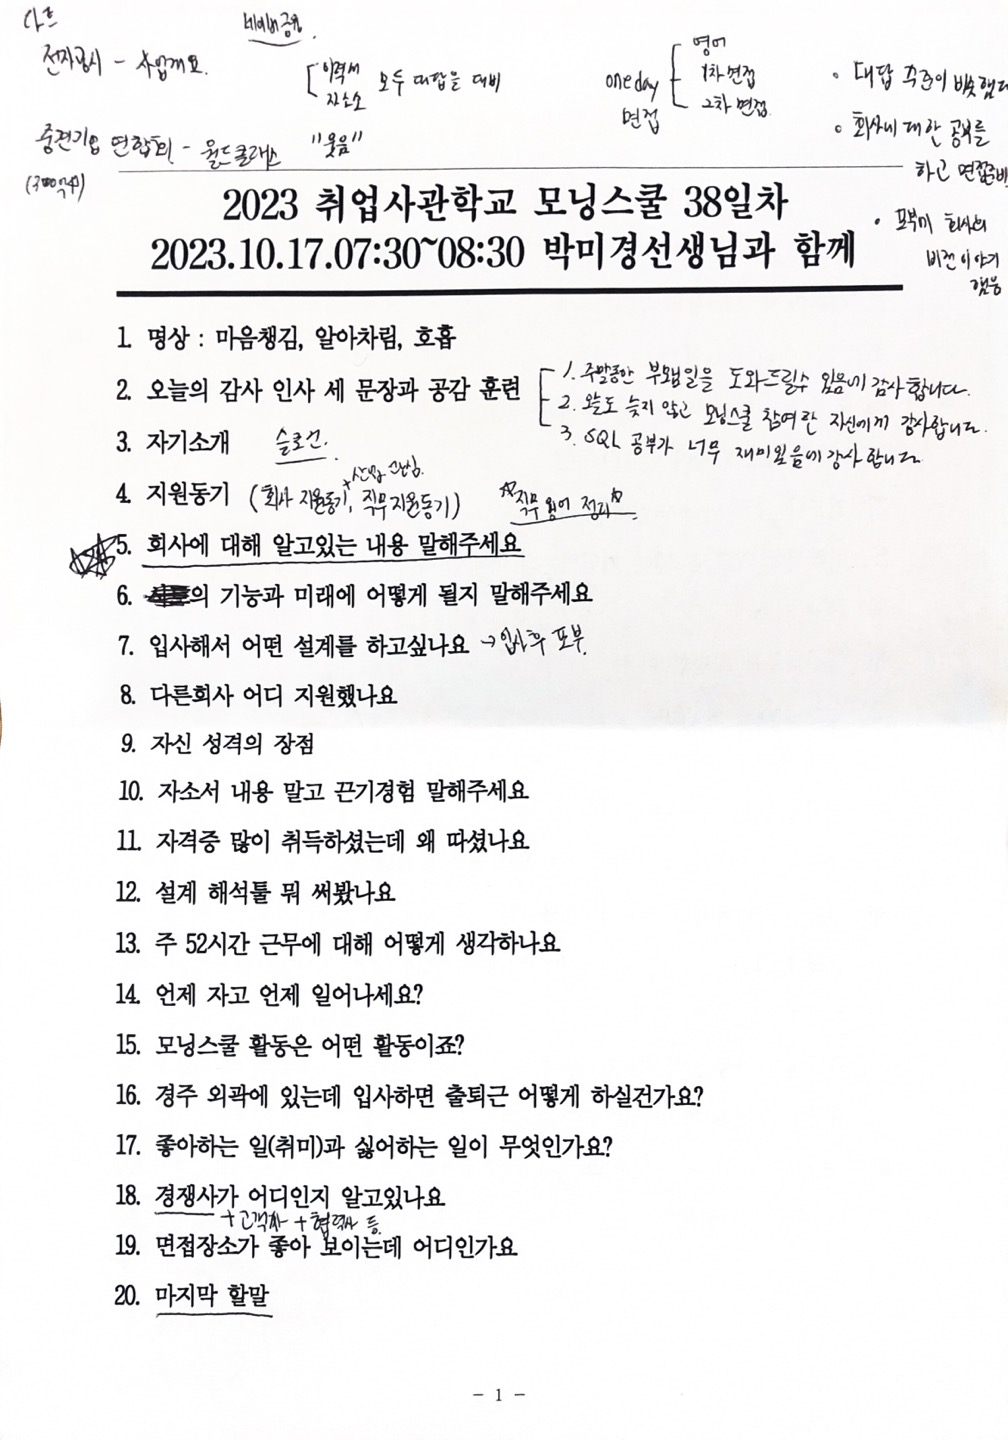 다트
네이버금융.
전자공시 - 사업개요.
이력서
자소서
모두 대답을 대비
one day
면접
영어
1차 면접
2차 면접
• 대답 수준이 비슷했다
• 회사에 대한 공부를
하고 면접준비
• 포부미 회사의
비전이야기
했음
중견기업 연합회 - 월드클래스
"웃음"
2023 취업사관학교 모닝스쿨 38일차
2023.10.17.07:30~08:30 박미경선생님과 함께
1. 명상 : 마음챙김, 알아차림, 호흡
2. 오늘의 감사 인사 세 문장과 공감 훈련
1. 주말동안 부모님일을 도와드릴수 있음에 감사합니다.
2. 오늘도 늦지 않고 모닝스쿨 참여한 자신에게 감사합니다.
3. SQL 공부가 너무 재미있음에 감사합니다
3. 자기소개 슬로건.
+산업 관심
4. 지원동기 (회사 지원동기, 직무지원동기) 직무 용어 정리
5. 회사에 대해 알고있는 내용 말해주세요
6. 의 기능과 미래에 어떻게 될지 말해주세요
7. 입사해서 어떤 설계를 하고싶나요 → 입사후 포부.
8. 다른회사 어디 지원했나요
9. 자신 성격의 장점
10. 자소서 내용 말고 끈기경험 말해주세요
11. 자격증 많이 취득하셨는데 왜 따셨나요
12. 설계 해석툴 뭐 써봤나요
13. 주 52시간 근무에 대해 어떻게 생각하나요
14. 언제 자고 언제 일어나세요?
15. 모닝스쿨 활동은 어떤 활동이죠?
16. 경주 외곽에 있는데 입사하면 출퇴근 어떻게 하실건가요?
17. 좋아하는 일(취미)과 싫어하는 일이 무엇인가요?
18. 경쟁사가 어디인지 알고있나요
+고객사 +협력사 등.
19. 면접장소가 좋아 보이는데 어디인가요
20. 마지막 할말
- 1 -